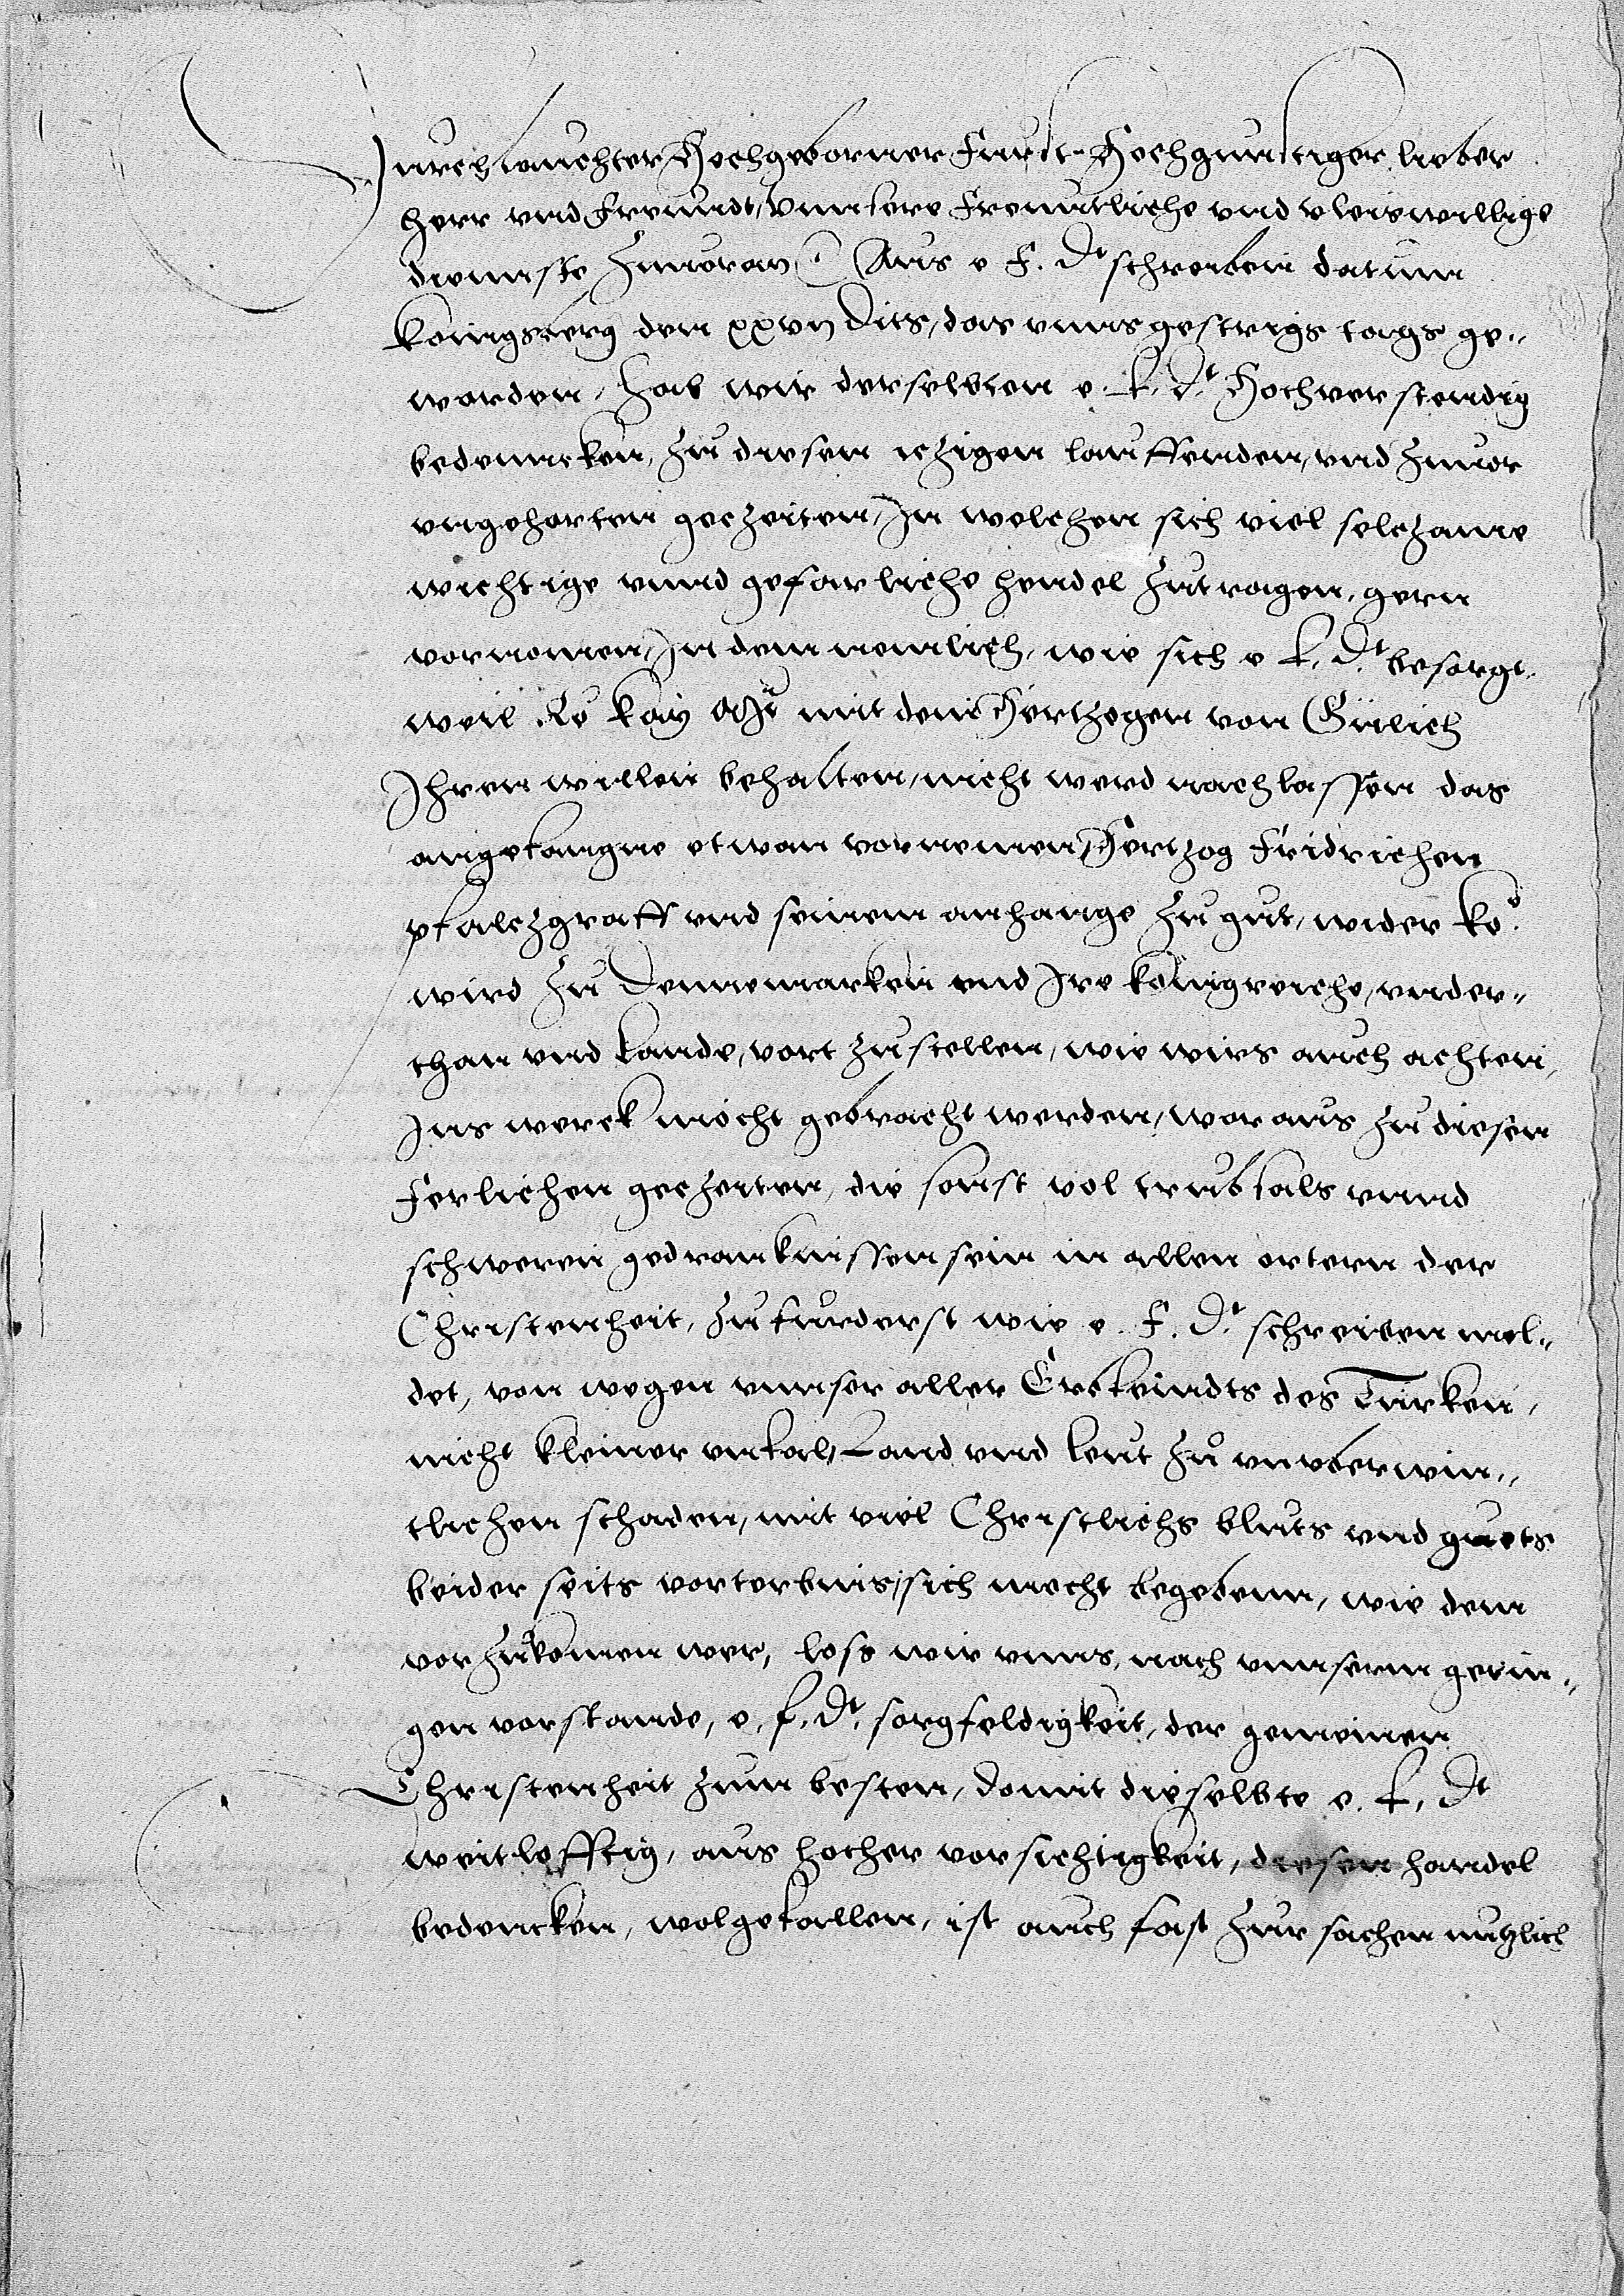 Durchlauchter Hochgeborner Furst Hochgunstiger lieber
Herr vnd Freundt, Vnnsere Freuntliche vnd vleiswillige
diennste zuuoran, Aus e f. Dt schreiben datum
Konigsberg den xxvij dits, das vnns gestrigs tags ge„
worden, hab wir derselbten e. f. Dt Hochverstendig
bedenncken, zu diesen iczigen lauffenden, vnd zuuor
vngehorten geczeiten, In welchen sich viel selczame
wichtige vnnd gefarliche hendel zutragen, gern
vornomen, In dem nemlich, wie sich e f. Dt besorgt
weil Ro kay Mt mit dem Hertzogen von Gulich
Ihren willen behalten, nicht werd nachlassen das
angefangne etwan vornemen, Hertzog Fridrichen
pfalczgraff vnd seinem anhange zu gut, wider ko
wird zu Dennemarken vnd Ire konigreiche, vnder„
than vnd Lande, vort zustellen, wie wirs auch achten,
Ins werck mocht gebracht werden, woraus zu diesen
Ferlichen geczeiten, die sonst vol trubsals vnnd
schweren gedrancknissen sein in allen ortern der
Christenheit, zufurderst wie e. f. Dt schreiben mel„
det, von wegen vnnser aller Erbfeindts des Turken,
nicht kleiner vnfal, Land vnd leut zu vnvberwin„
tlichen schaden, mit viel Christlichs bluts vnd guets
beider seits vorterbnis, sich mocht begebenn, wie dem
vorzukomen wer, loss wir vnns, nach vnnserm gerin„
gen vorstande, e. f. Dt. sorgfeldigkeit, der gemeinen
Christenheit zum besten, domit dieselbte e. f. Dt
weitlofftig, aus hocher vorsichtigkeit, diesen handel
bedencken, wolgefallen, ist auch fast zur sachen nutzlich